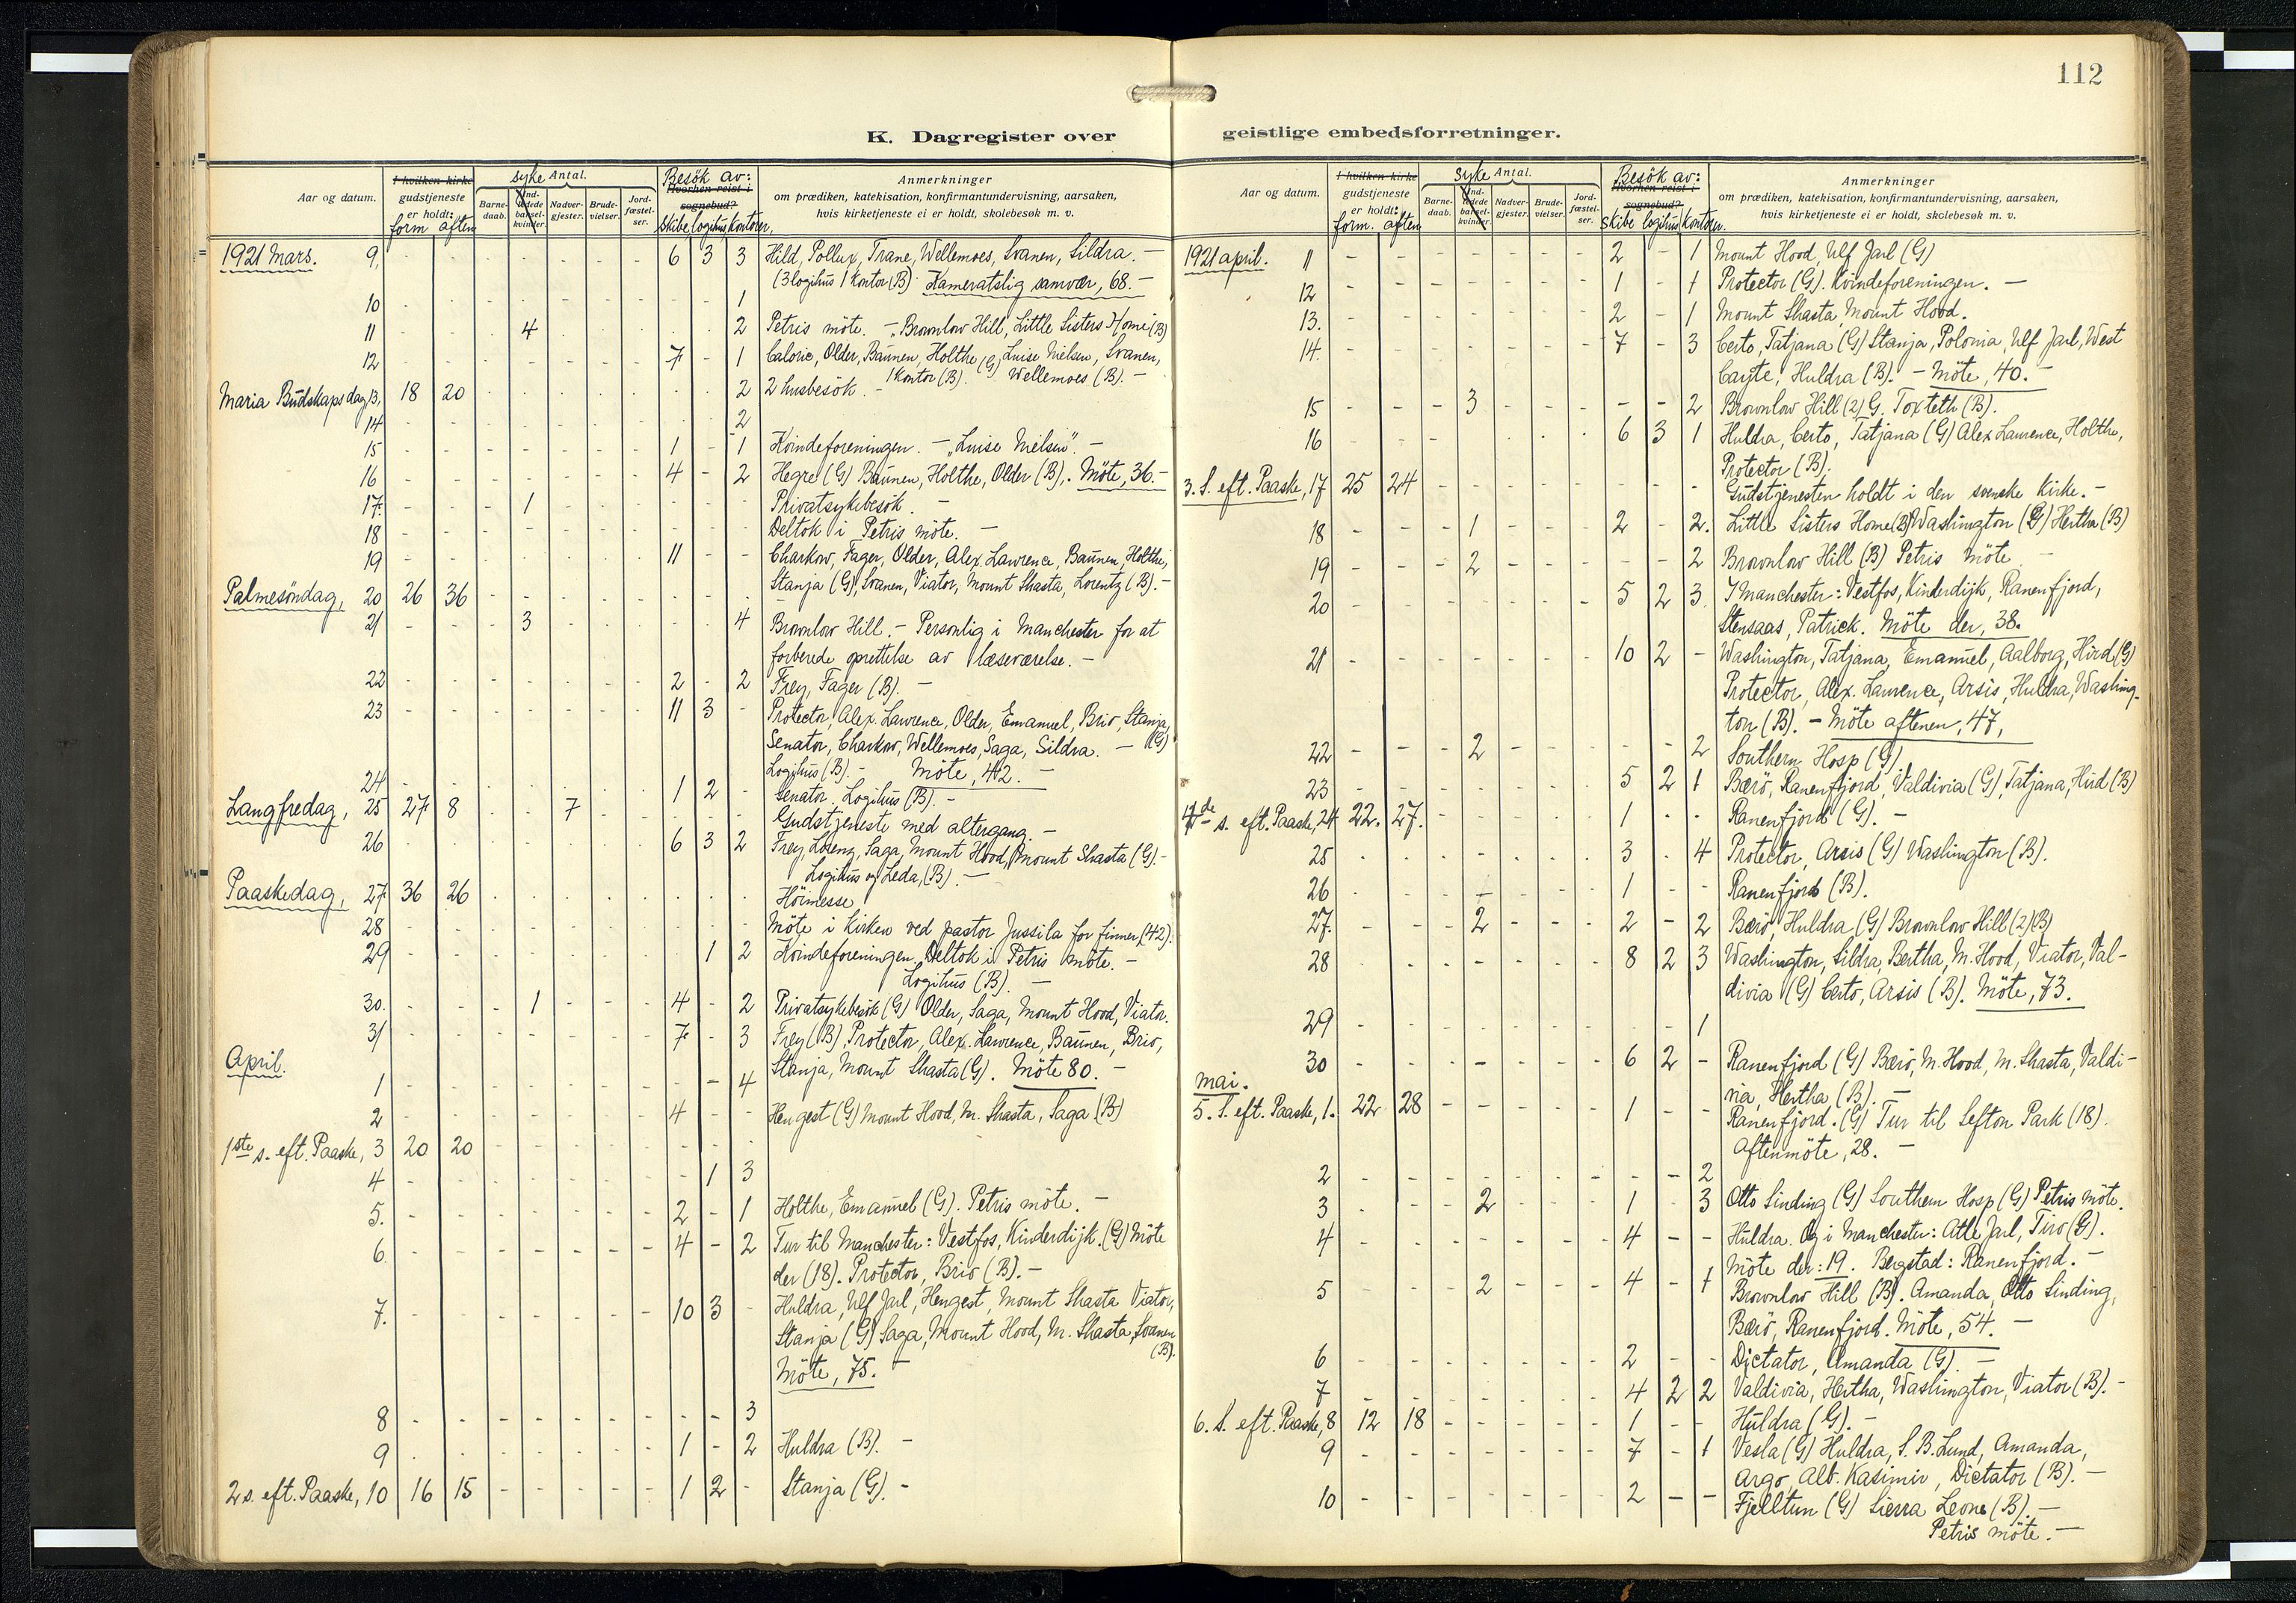 112
K. Dagregister over
geistlige embedsforretninger.
Aar og datum.
I hvilken kirke gudstjeneste er holdt:
form aften
syke Antal.
Barne-daab.
Ind-ledede barsel-kvinder.
Nadver-gjester.
Brude-vielser.
Jord-fæstel-ser.
Besök av:
Hvorhen reist i sognebud?
skibe logihus kontorer,
Anmerkninger
om prædiken, katekisation, konfirmantundervisning, aarsaken,
hvis kirketjeneste ei er holdt, skolebesøk m. v.
1921 Mars. 9, - - - - - - - 6 3 3 Hild, Pollux, Trane, Wellemoes, Svanen, Sildra. -
(3 logihus 1 kontor (B) Kameratslig samvær, 68. -
10 - - - - - - - 1
11 - - - 4 - - - 2 Petris möte. - Brownlow Hill, Little Sisters Home (B)
12 - - - - - - - 7 - 1 Caloric, Older, Baunen, Holthe (G) Luise Nielsen, Svanen,
1 kontor (B). Wellemoes (B). -
Maria Budskapsdag 13, 18 20 - - - - - 2 2 husbesök. -
14 - - - - - - - 2
15 - - - - - - - 1 - 1 Kvindeforeningen. - "Luise Nielsen". -
16 - - - - - - - 4 - 2 Hegre (G) Baunen, Holthe, Older (B). Möte, 36. -
17. - - - 1 - - - Privatsykebesök. -
18 - - - - - - - Deltok i Petris möte. -
19 - - - - - - - 11 - - Charkow, Fager, Older, Alex. Lawrence, Baunen, Holthe,
Stanja (G), Svanen, Viator, Mount Shasta, Lorentz (B). -
Palmesöndag, 20 26 36 - - - - -
21 - - - 3 - - - 4 Brownlow Hill. - Personlig i Manchester for at
forberede oprettelse av læseværelse. -
22 - - - - - - - 2 - 2 Frey, Fager (B). -
23 - - - - - - - 11 3 - Protector, Alex. Lawrence, Older, Emanuel, Brio, Stanja,
Senator, Charkow, Wellemoes, Saga, Sildra. - (G)
Logihus (B). - Möte, 42. -
24 - - - - - - - 1 2 - Senator. Logihus (B). -
Langfredag, 25 27 8 - - 7 - - Gudstjeneste med altergang. -
26 - - - - - - - 6 3 2 Frey, Lorenz, Saga, Mount Hood, Mount Shasta (G). -
Logihus og Leda, (B). -
Paaskedag, 27. 36 26 - - - - - Höimesse
28 - - - - - - - Möte i Kirken ved pastor Jussila for finner, (42).
29 - - - - - - - 1 2 Kvindeforeningen. Deltok i Petris möte. -
Logihus (B). -
30. - - - 1 - - - 4 - 2 Privatsykebesök (G) Older, Saga, Mount Hood, Viator.
31 - - - - - - - 7 - 3 Frey (B), Protector, Alex. Lawrence, Baunen, Brio,
Stanja, Mount Shasta (G). Möte 80. -
April.
1 - - - - - - - - 4
2 - - - - - - - 4 - - Hengest (G) Mount Hood, M. Shasta, Saga (B)
1ste s. eft. Paaske, 3 20 20 - - - - -
4 - - - - - - - - 1 3
5. - - - - - - - 2 - 1 Holthe, Emanuel (G). Petris möte. -
6 - - - - - - - 4 - 2 Tur til Manchester: Vestfos, Kinderdijk. (G) Möte
der (18). Protector, Brio (B). -
7. - - - - - - - 10 3 - Huldra, Ulf Jarl, Hengest, Mount Shasta Viator,
Stanja (G) Saga, Mount Hood, M. Shasta, Svanen
(B).
Möte, 75. -
8 - - - - - - - - - 3
9 - - - - - - - 1 - 2 Huldra (B). -
2 s. eft. Paaske, 10 16 15 - - - - - 1 2 - Stanja (G). -
Aar og datum.
I hvilken kirke gudstjeneste er holdt:
form. aften
syke Antal.
Barne-daab.
Ind-ledede barsel-kvinder.
Nadver-gjester.
Brude-vielser.
Jord-fæstel-ser.
Besök av:
Hvorhen reist i sognebud?
skibe logihus kontorer.
Anmerkninger
om prædiken, katekisation, konfirmantundervisning, aarsaken,
hvis kirketjeneste ei er holdt, skolebesøk m. v.
1921 april. 11 - - - - - - - 2 - 1 Mount Hood, Ulf Jarl (G)
12 - - - - - - - 1 - 1 Protector (G). Kvindeforeningen. -
13. - - - - - - - 2 - 1 Mount Shasta, Mount Hood.
14. - - - - - - - 7 - 3 Certo, Tatjana (G) Stanja, Polonia, Ulf Jarl, West
Cayte, Huldra (B). - Möte, 40. -
15 - - - 3 - - - - - 2 Brownlow Hill (2) G. Toxteth (B).
16 - - - - - - - 6 3 1 Huldra, Certo, Tatjana (G) Alex Lawrence, Holthe,
Protector (B).
3. S. eft. Paaske, 17 25 24 - - - - - - - - Gudstjenesten holdt i den svenske kirke. -
18 - - - 1 - - - 2 - 2. Little Sisters Home (B) Washington (G) Hertha (B)
19 - - - 2 - - - - - 2 Brownlow Hill (B) Petris möte -
20 - - - - - - - 5 2 3. I Manchester: Vestfos, Kinderdijk, Ranenfjord,
Stensaas, Patrick. Möte der, 38.
21 - - - - - - - 10 2 - Washington, Tatjana, Emanuel, Aalborg, Hird (G)
Protector, Alex. Lawrence, Arsis, Huldra, Washing-
ton (B). - Möte aftenen, 47,
22 - - - 2 - - - - - 2 Southern Hosp (G).
23 - - - - - - - 5 2 1 Bærö, Ranenfjord, Valdivia (G), Tatjana, Hird (B)
4de s. eft. Paaske, 24 22. 27. - - - - - 1 - - Ranenfjord (G). -
25 - - - - - - - 3 - 4 Protector, Arsis (G) Washington (B).
26 - - - - - - - 1 - - Ranenfjord (B).
27. - - - 2 - - - 2 - 2 Bærö, Huldra (G) Brownlow Hill (2) (B)
28 - - - - - - - 8 2 3 Washington, Sildra, Bertha, M. Hood, Viator, Val-
divia (G) Certo, Arsis (B). Möte, 73.
29 - - - - - - - - - 1
30 - - - - - - - 6 2 - Ranenfjord (G) Bærö, M. Hood, M. Shasta, Valdi-
via, Hertha (B). -
mai.
5. S. eft. Paaske, 1. 22 28 - - - - - 1 - - Ranenfjord. (G) Tur til Sefton Park (18).
Aftenmöte, 28. -
2 - - - - - - - - - 2
3 - - - 2 - - - 1 - 3 Otto Sinding (G) Southern Hosp (G) Petris möte.
4 - - - - - - - 4 - - Huldra. Og i Manchester: Atle Jarl, Tiro (G).
Möte der: 19. Bergstad: Ranenfjord. -
5 - - - 2 - - - 4 - 1 Brownlow Hill (B). Amanda, Otto Sinding,
Bærö, Ranenfjord. Möte, 54. -
6 - - - - - - - 2 - - Dictator, Amanda (G). -
7 - - - - - - - 4 2 2 Valdivia, Hertha, Washington, Viator (B). -
6. S. eft. Paaske, 8 12 18 - - - - - 1 - - Huldra (G). -
9 - - - - - - - 7 - 1 Vesla (G) Huldra, S. B. Lund, Amanda,
Argo, Alb. Kasimir, Dictator (B). -
10 - - - - - - - 2 - - Fjelltun (G) Sierra Leone (B). -
Petris möte. -